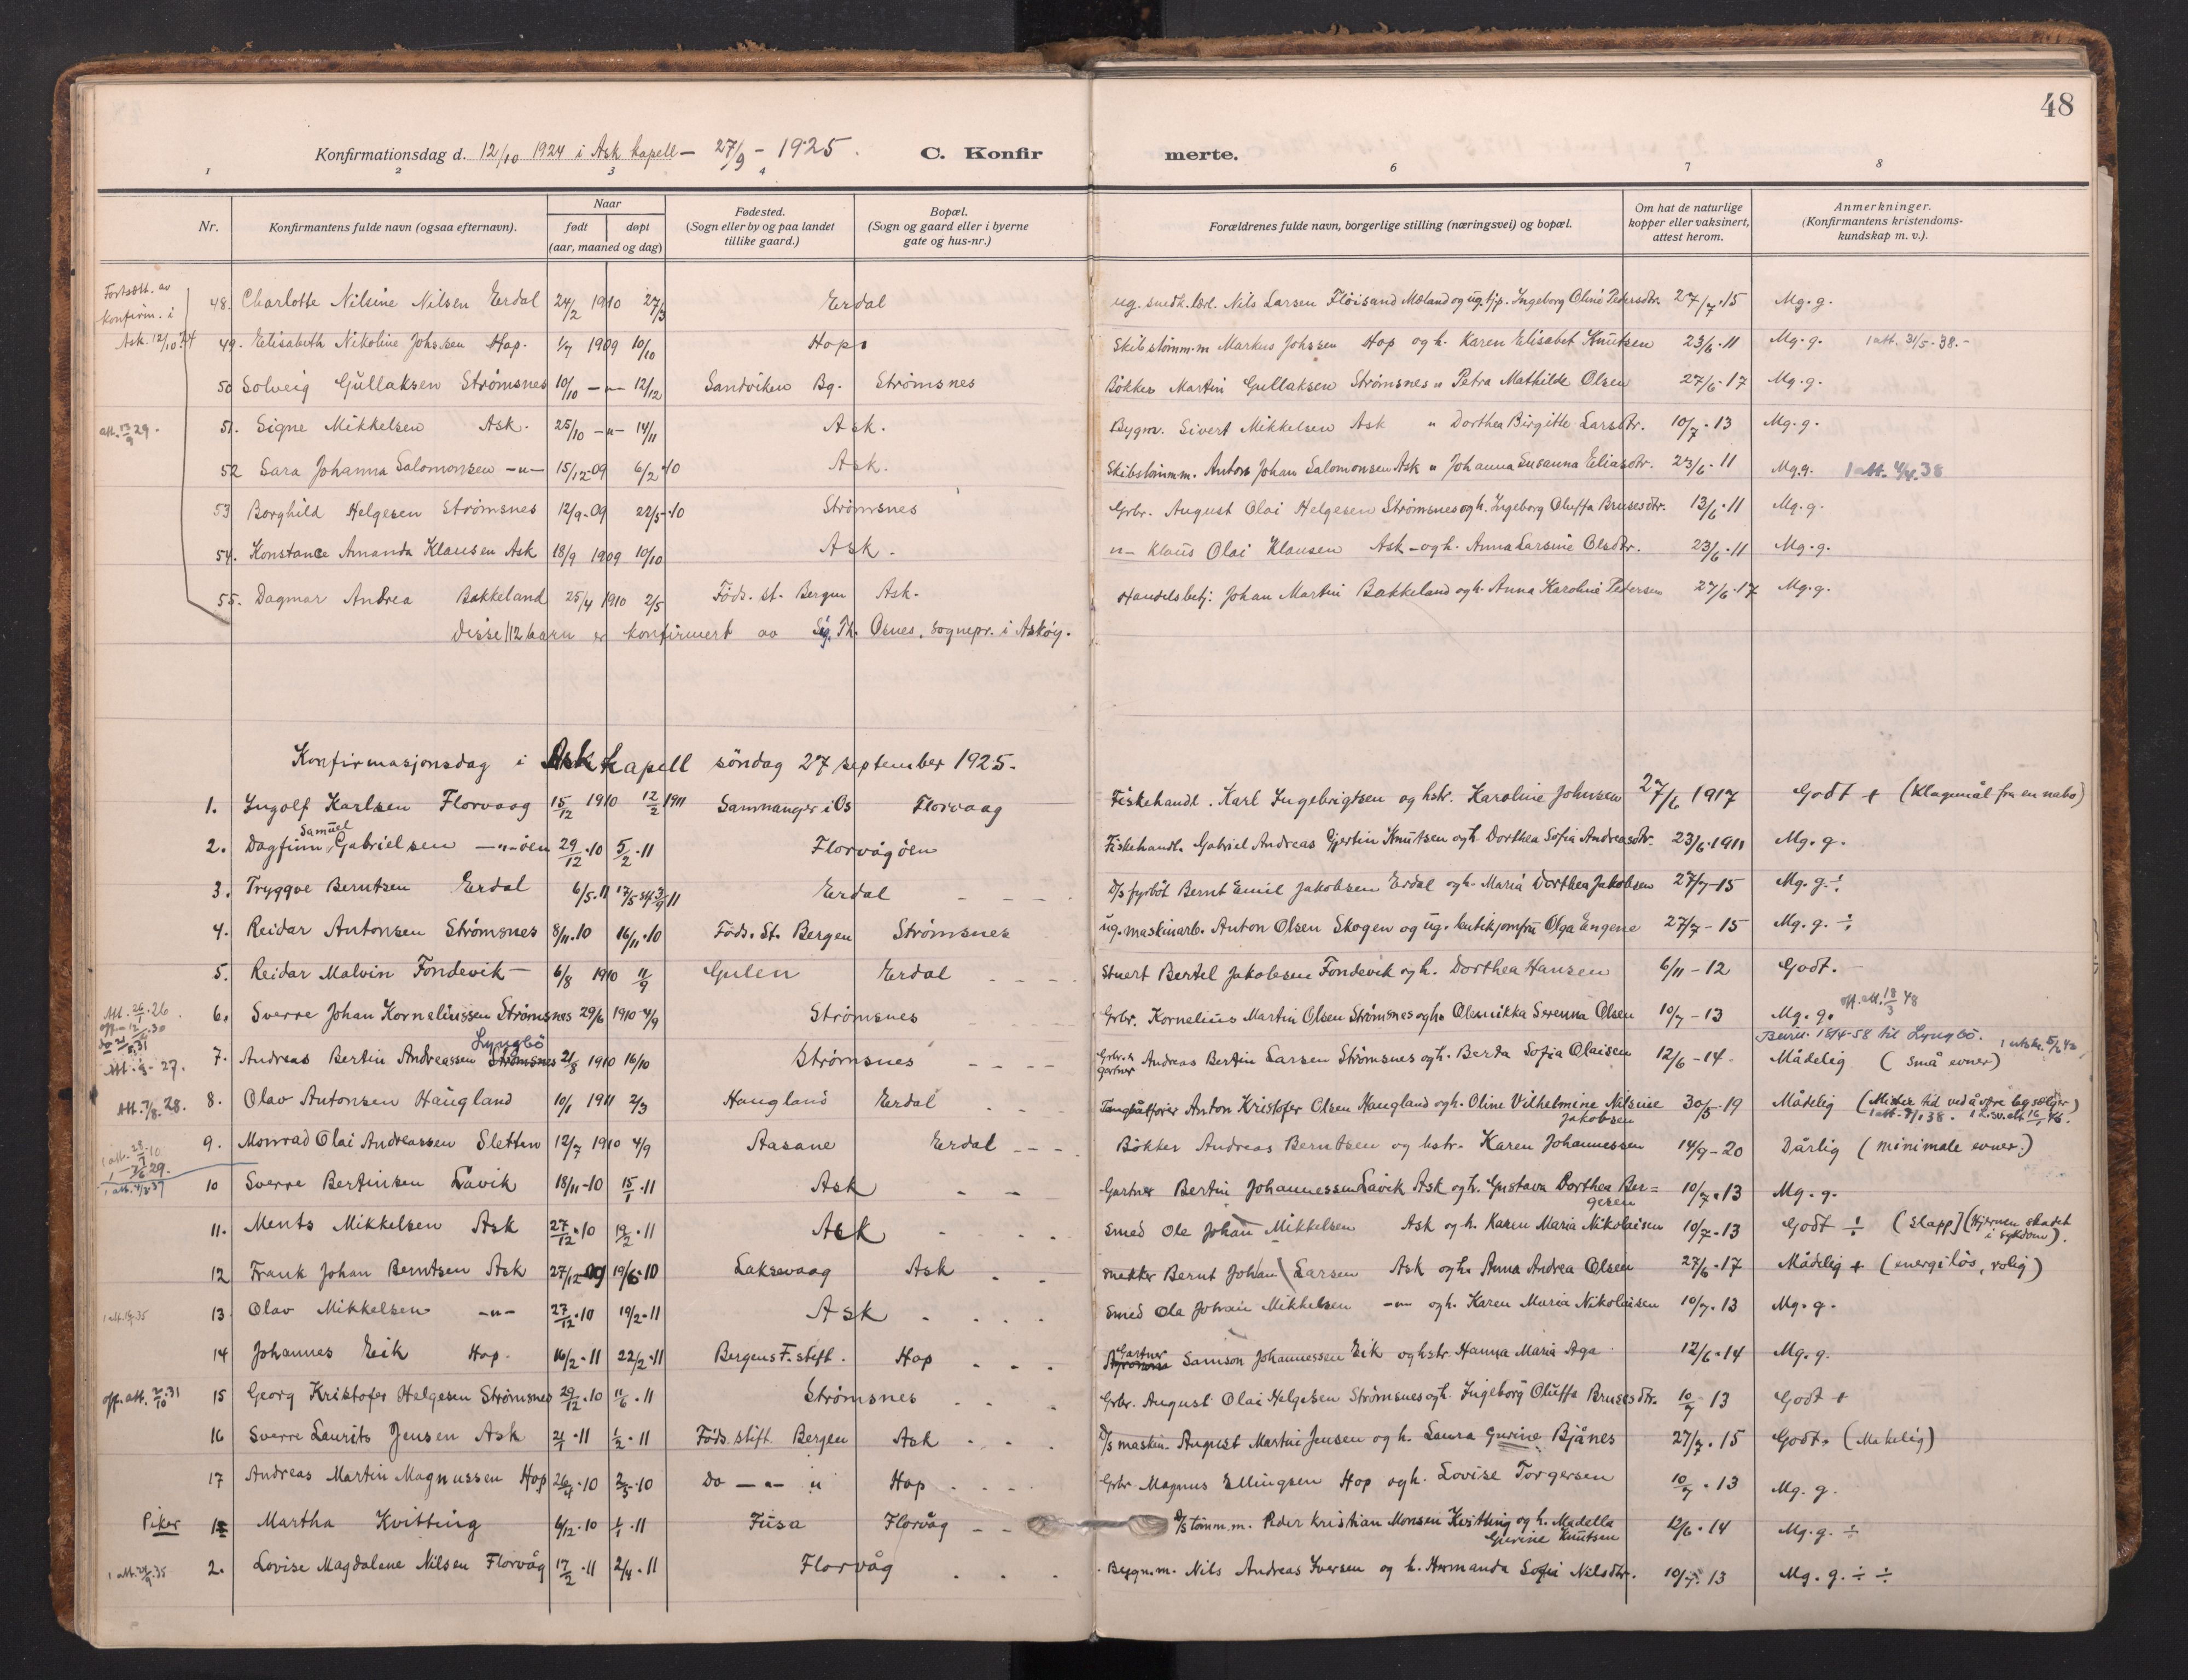 48
Konfirmationsdag d. 12/10 1924 i Ask kapell – 27/9 – 1925. C. Konfir merte.
1 2 3 4 6 7 8
Nr. Konfirmantens fulde navn (ogsaa efternavn). Naar født døpt (aar, maaned og dag) Fødested. (Sogn eller by og paa landet tillike gaard.) Bopæl. (Sogn og gaard eller i byerne gate og hus-nr.) Forældrenes fulde navn, borgerlige stilling (næringsvei) og bopæl. Om hat de naturlige kopper eller vaksinert, attest herom. Anmerkninger. (Konfirmantens kristendoms-kundskap m. v.).
Fortsatt. av konfirm. i Ask. 12/10.24
48. Charlotte Nilsine Nilsen Erdal 24/2 1910 27/3 Erdal ug. snedk.lærl. Nils Larsen Flöisand Mæland og ug. tjp. Ingeborg Oline Pedersdtr. 27/7.15 Mg. g.
49. Elisabeth Nikoline Johssen Hop. 1/7 1909 10/10 Hop. Skibstömm.m Markus Johssen Hop og h. Karen Elisabet Knutsen 23/6.11 Mg. g. 1 att. 31/5-38.-
50 Solveig Gullaksen Strømsnes 10/10 -"- 12/12 Sandviken Bg. Strømsnes Bökker Martin Gullaksen Strømsnes " Petra Mathilde Olsen 27/6.17 Mg. g.
att. 13/9 29. 51. Signe Mikkelsen Ask. 25/10 -"- 14/11 Ask. Bygm. Sivert Mikkelsen Ask " Dorthea Birgitte Larsdtr. 10/7.13 Mg. g.
52 Sara Johanna Salomonsen -"- 15/12-09 6/2.10 Ask. Skibstömm. Anton Johan Salomonsen Ask " Johanna Susanna Eliasdtr. 23/6.11 Mg. g. 1 att. 4/4.38
53 Borghild Helgesen Strømsnes 12/9-09 22/5.10 Strømsnes Grbr. August Olai Helgesen Strømsnes og h. Ingeborg Oluffa Brusesdtr. 13/6.11 Mg. g.
54. Konstance Amanda Klausen Ask 18/9 1909 10/10 Ask. "- Klaus Olai Klausen Ask - og h. Anna Larsine Olsdtr. 23/6.11 Mg. g.
55. Dagmar Andrea Bakkeland 25/4 1910 2/5 Föds. st. Bergen Ask. Handelsbetj. Johan Martin Bakkeland og h. Anna Karoline Pedersen 27/6.17 Mg. g.
Disse 112 barn er konfirmert av Sig. Th. Osnes, sognepr. i Askøy.
Konfirmasjonsdag i Ask kapell söndag 27 september 1925.
1. Ingolf Karlsen Florvaag 15/12 1910 12/2 1911 Samnanger i Os Florvaag Fiskehandl. Karl Ingebrigtsen og hstr. Karoline Johnsen 27/6 1917 Godt + (Klagemål fra en nabo)
2. Dagfinn Samuel Gabrielsen -"- öen 29/12.10 5/2.11 Florvåg öen Fiskehandl. Gabriel Andreas Gjertin Knutsen og h. Dorthea Sofia Andreasdtr. 23/6.1911 Mg. g.
3. Tryggve Berntsen Erdal 6/5.11 Erdal D/s fyrböt Bernt Emil Jakobsen Erdal og h. Maria Dorthea Jakobsen 27/7-15 Mg. g. ÷
4. Reidar Antonsen Strømsnes 8/11.10 16/11.10 Föds. St. Bergen Strømsnes ug. maskinarb. Anton Olsen Skogen og ug. butikjomfru Olga Engene 27/7-15 Mg. g. ÷
5. Reidar Malvin Fondevik 6/8 1910 11/9 Gulen Erdal Stuert Bertel Jakobsen Fondevik og h. Dorthea Hansen 6/11-12 Godt.
Att. 26/1.26. 6. Sverre Johan Korneliussen Strømsnes 29/6 1910 4/9 Strømsnes Grbr. Kornelius Martin Olsen Strømsnes og h. Olennikka Serenna Olsen 10/7-13 Mg. g. off. att. 18/3 48
Lyngbö Bevis. 18/4-58 til Lyngbö. 1 utskr. 5/6 42
7. Andreas Bertin Andreassen Strømsnes 21/8 1910 16/10 Strømsnes Grbr. & gartner Andreas Bertin Larsen Strömsnes og h. Berta Sofia Olaisen 12/6-14. Mådelig (små evner)
Att. 7/8.28. 8. Olav Antonsen Haugland 10/1 1911 2/3 Haugland Erdal Tangbåtförer Anton Kristofer Olsen Haugland og h. Oline Vilhelmine Nilsine Jakobsen 30/5-19 Mådelig (Mister tid ved å være bysælger)
9. Monrad Olai Andreassen Sletten 12/7 1910 4/9 Aasane Erdal Bökker Andreas Berntsen og hstr. Karen Johannessen 14/9-20 Dårlig (minimale evner.)
10 Sverre Bertinsen Låvik 18/11-10 15/1.11 Ask Gartner Bertin Johannessen Låvik Ask og h. Gustava Dorthea Ber=gesen 10/7.13 Mg. g.
11. Ments Mikkelsen Ask 27/12.10 19/2.11 Ask Smed Ole Johan Mikkelsen Ask og h. Karen Maria Nikolaisen 10/7.13 Godt ÷ (Slapp) (Hjernen skadet i sykdom).
12 Frank Johan Berntsen Ask 27/12 09 19/6.10 Laksevaag Ask Snekker Bernt Johan Larsen Ask og h. Anna Andrea Olsen 27/6.17 Mådelig + (energilös, rolig)
13 Olav Mikkelsen -"- 27/12.10 19/2.11 Ask Smed Ole Johan Mikkelsen -"- og h. Karen Maria Nikolaisen 10/7.13 Mg. g.
14 Johannes Eik Hop. 16/2.11 22/2.11 Bergens F. stift. Hop Gartner Samson Johannessen Eik og hstr. Hanna Maria Aga 12/6.14 Mg. g.
off. att. 2/10.31 15 Georg Kristofer Helgesen Strømsnes 29/12.10 11/6.11 Strømsnes Grbr. August Olai Helgesen Strømsnes og h. Ingeborg Oluffa Brusesdtr. 10/7 13 Godt +
16 Sverre Laurits Jensen Ask 21/1.11 1/2.11 Föds. stift. Bergen Ask D/s maskin. August Martin Jensen og h. Laura Gurine Bjånes 27/7.15 Godt. (Makelig)
17 Andreas Martin Magnussen Hop 26/4.10 2/5.10 Do -"- " Hop Grbr. Magnus Ellingsen Hop og h. Lovise Torgersen 10/7.13 Mg. g.
Piker 1 Martha Kvitting 6/12.10 1/1.11 Fusa Florvåg D/s tömm.m. Peder Kristian Monsen Kvitting og h. Madella Gurine Knutsen 12/6.14 Mg. g. ÷
2. Lovise Magdalene Nilsen Florvåg 17/2.11 2/4.11 Florvåg Bygn.m. Nils Andreas Iversen og h. Hermanda Sofia Nilsdtr. 10/7.13 Mg. g. ÷ ÷